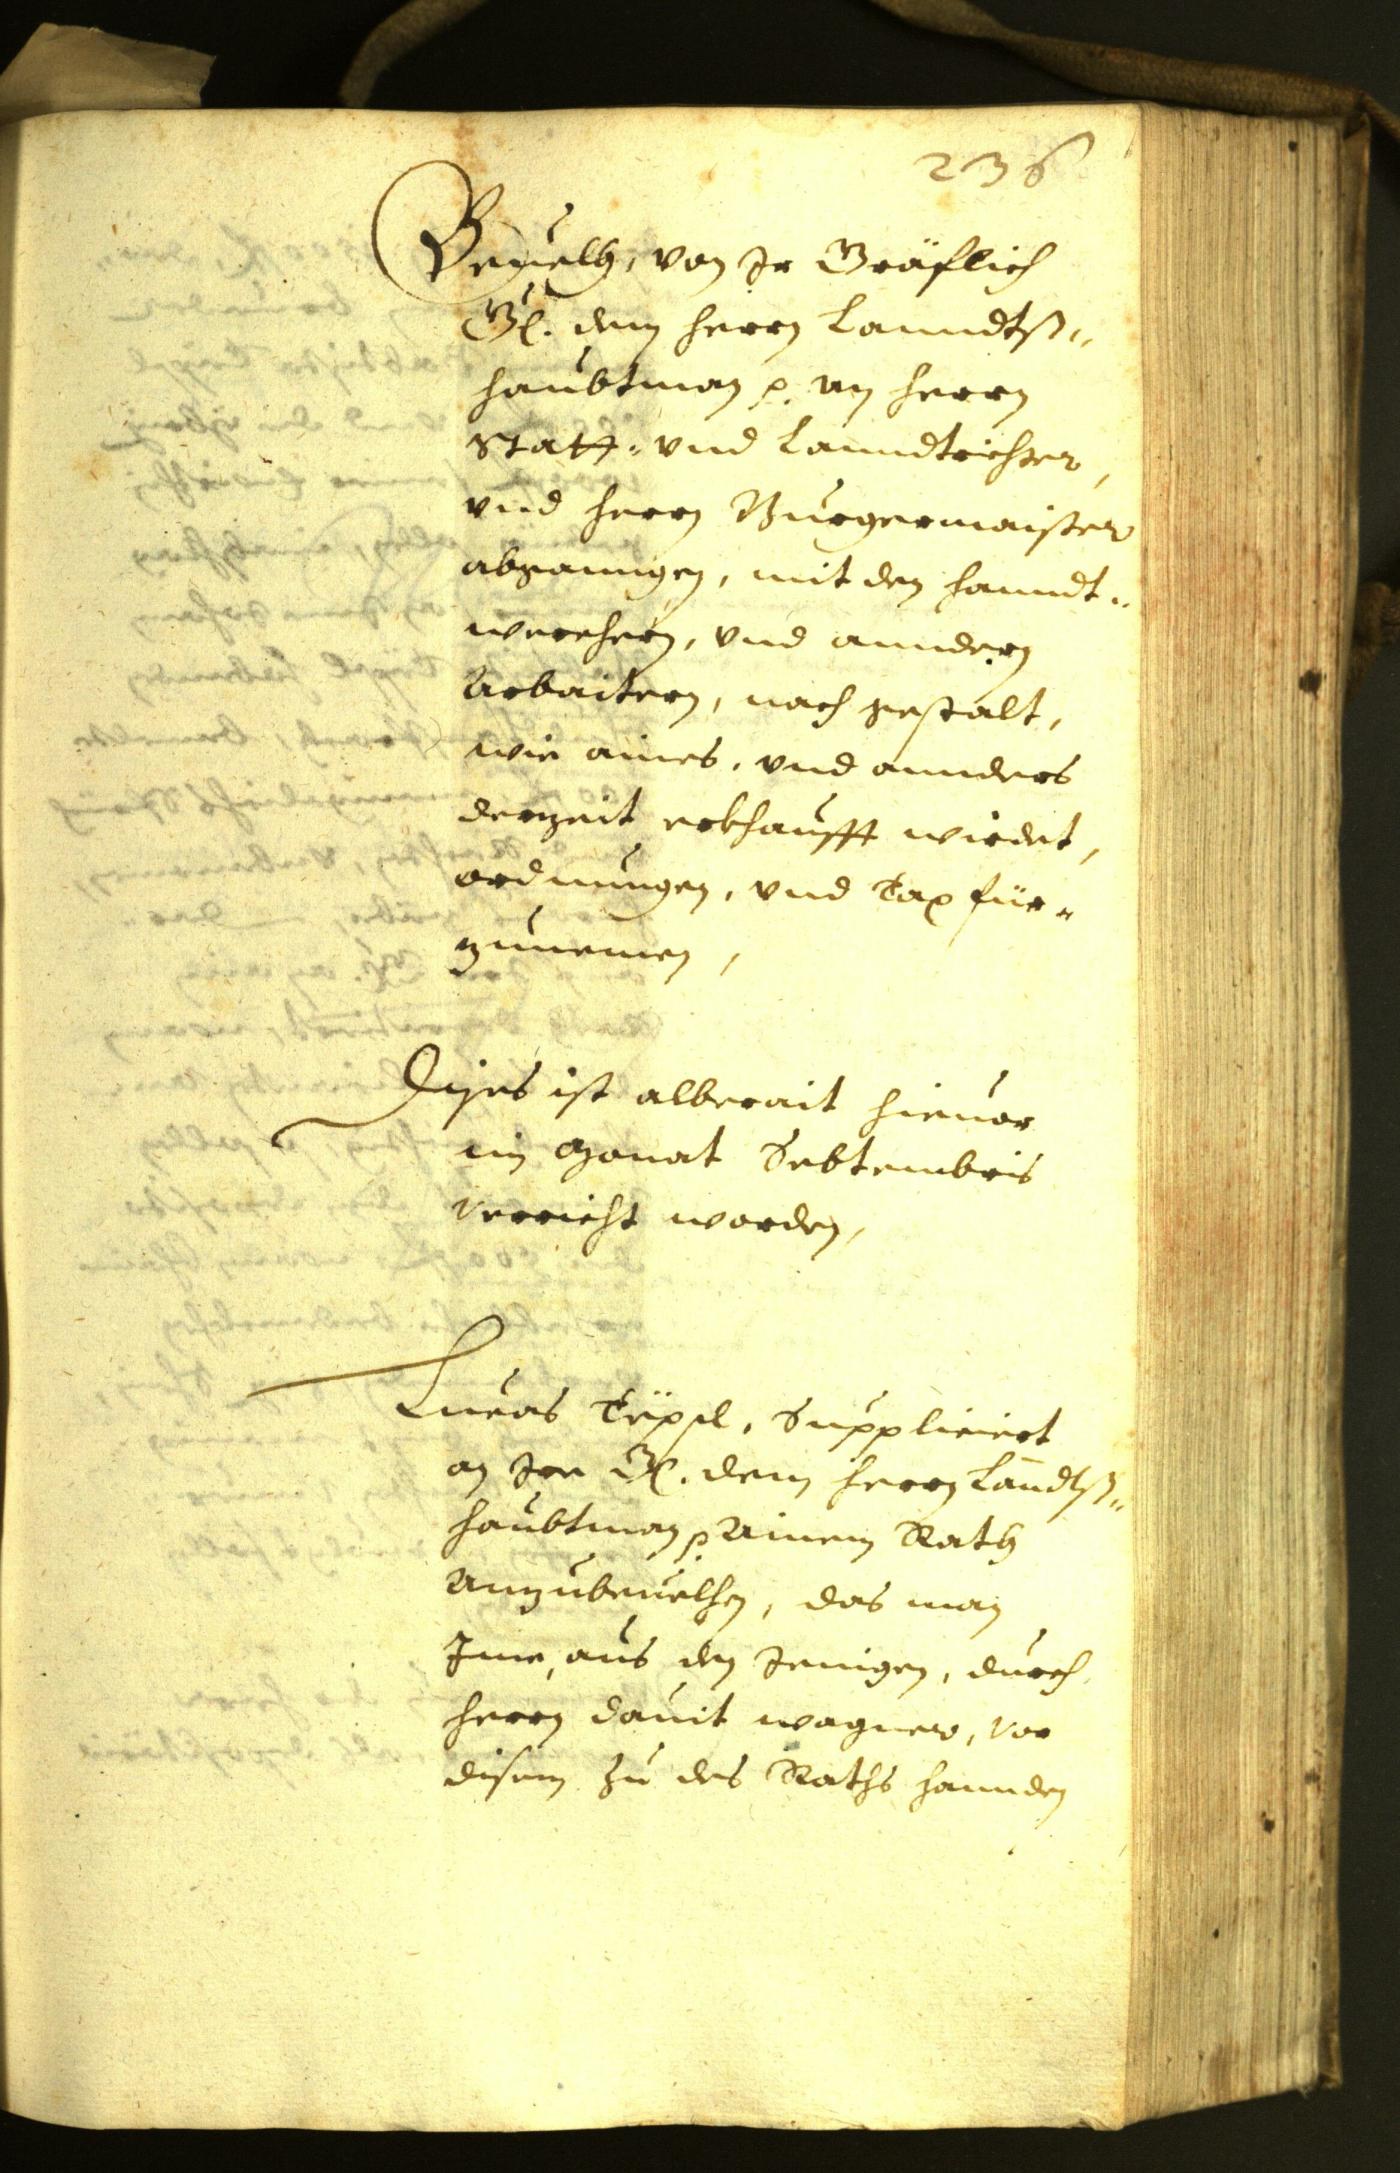 236
Beuelh, von Ir Gräflich
Gl. dem herrn Lanndtß„
haubtman p. an herrn
Statt- vnd Lanndtrichter,
vnd herrn Burgermaister
abganngen, mit den hanndt„
werchern, vnd anndern
Arbaitern, nach gestalt,
wie aines, vnd annders
derzeit erkhaufft wirdet,
ordnungen, vnd Tax für„
zunemen,
Dises ist alberait hieuor
im Monat Septembris
verricht worden,
Lucas Tripsl, Suppliciert
an Ire Gl. dem herrn Landtß„
haubtman p Ainem Rath
Anzubeuelhen, das man
Ime, aus den Jenigen, durch
herrn dauit wagner, vor
disem zu des Raths hannden